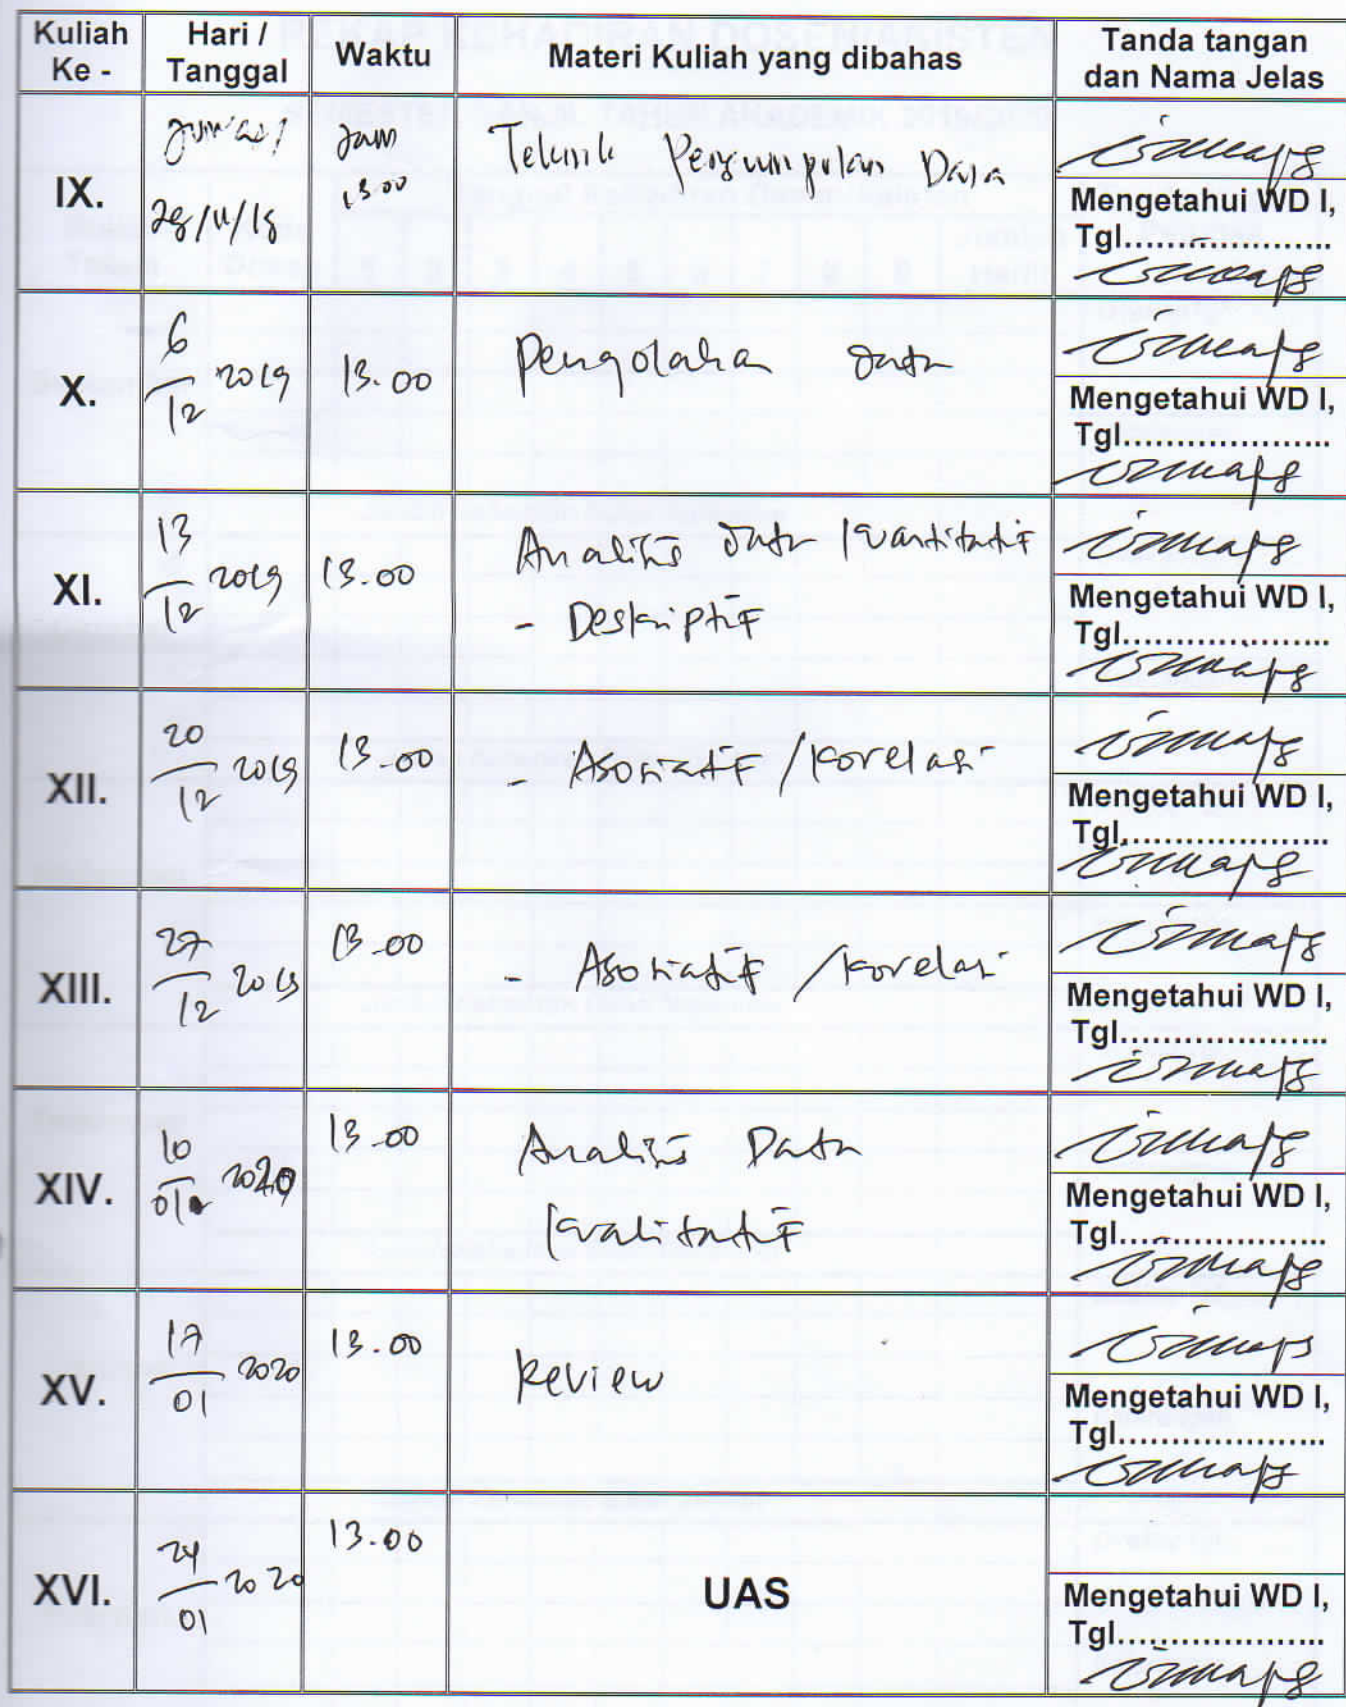 Kuliah Ke -
Hari / Tanggal
Waktu
Materi Kuliah yang dibahas
Tanda tangan dan Nama Jelas
IX.
Jum'at,
29/11/19
Jam
13.00
Teknik Pengumpulan Data
Mengetahui WD I,
Tgl....................
X.
6/12 2019
13.00
Pengolahan data
Mengetahui WD I,
Tgl....................
XI.
13/12 2019
13.00
Analisis data kuantitatif
- Deskriptif
Mengetahui WD I,
Tgl....................
XII.
20/12 2019
13.00
- Asosiatif / korelasi
Mengetahui WD I,
Tgl....................
XIII.
27/12 2019
13.00
- Asosiatif / korelasi
Mengetahui WD I,
Tgl....................
XIV.
10/01 2020
13.00
Analisis Data
kualitatif
Mengetahui WD I,
Tgl....................
XV.
17/01 2020
13.00
Review
Mengetahui WD I,
Tgl....................
XVI.
24/01 2020
13.00
UAS
Mengetahui WD I,
Tgl....................